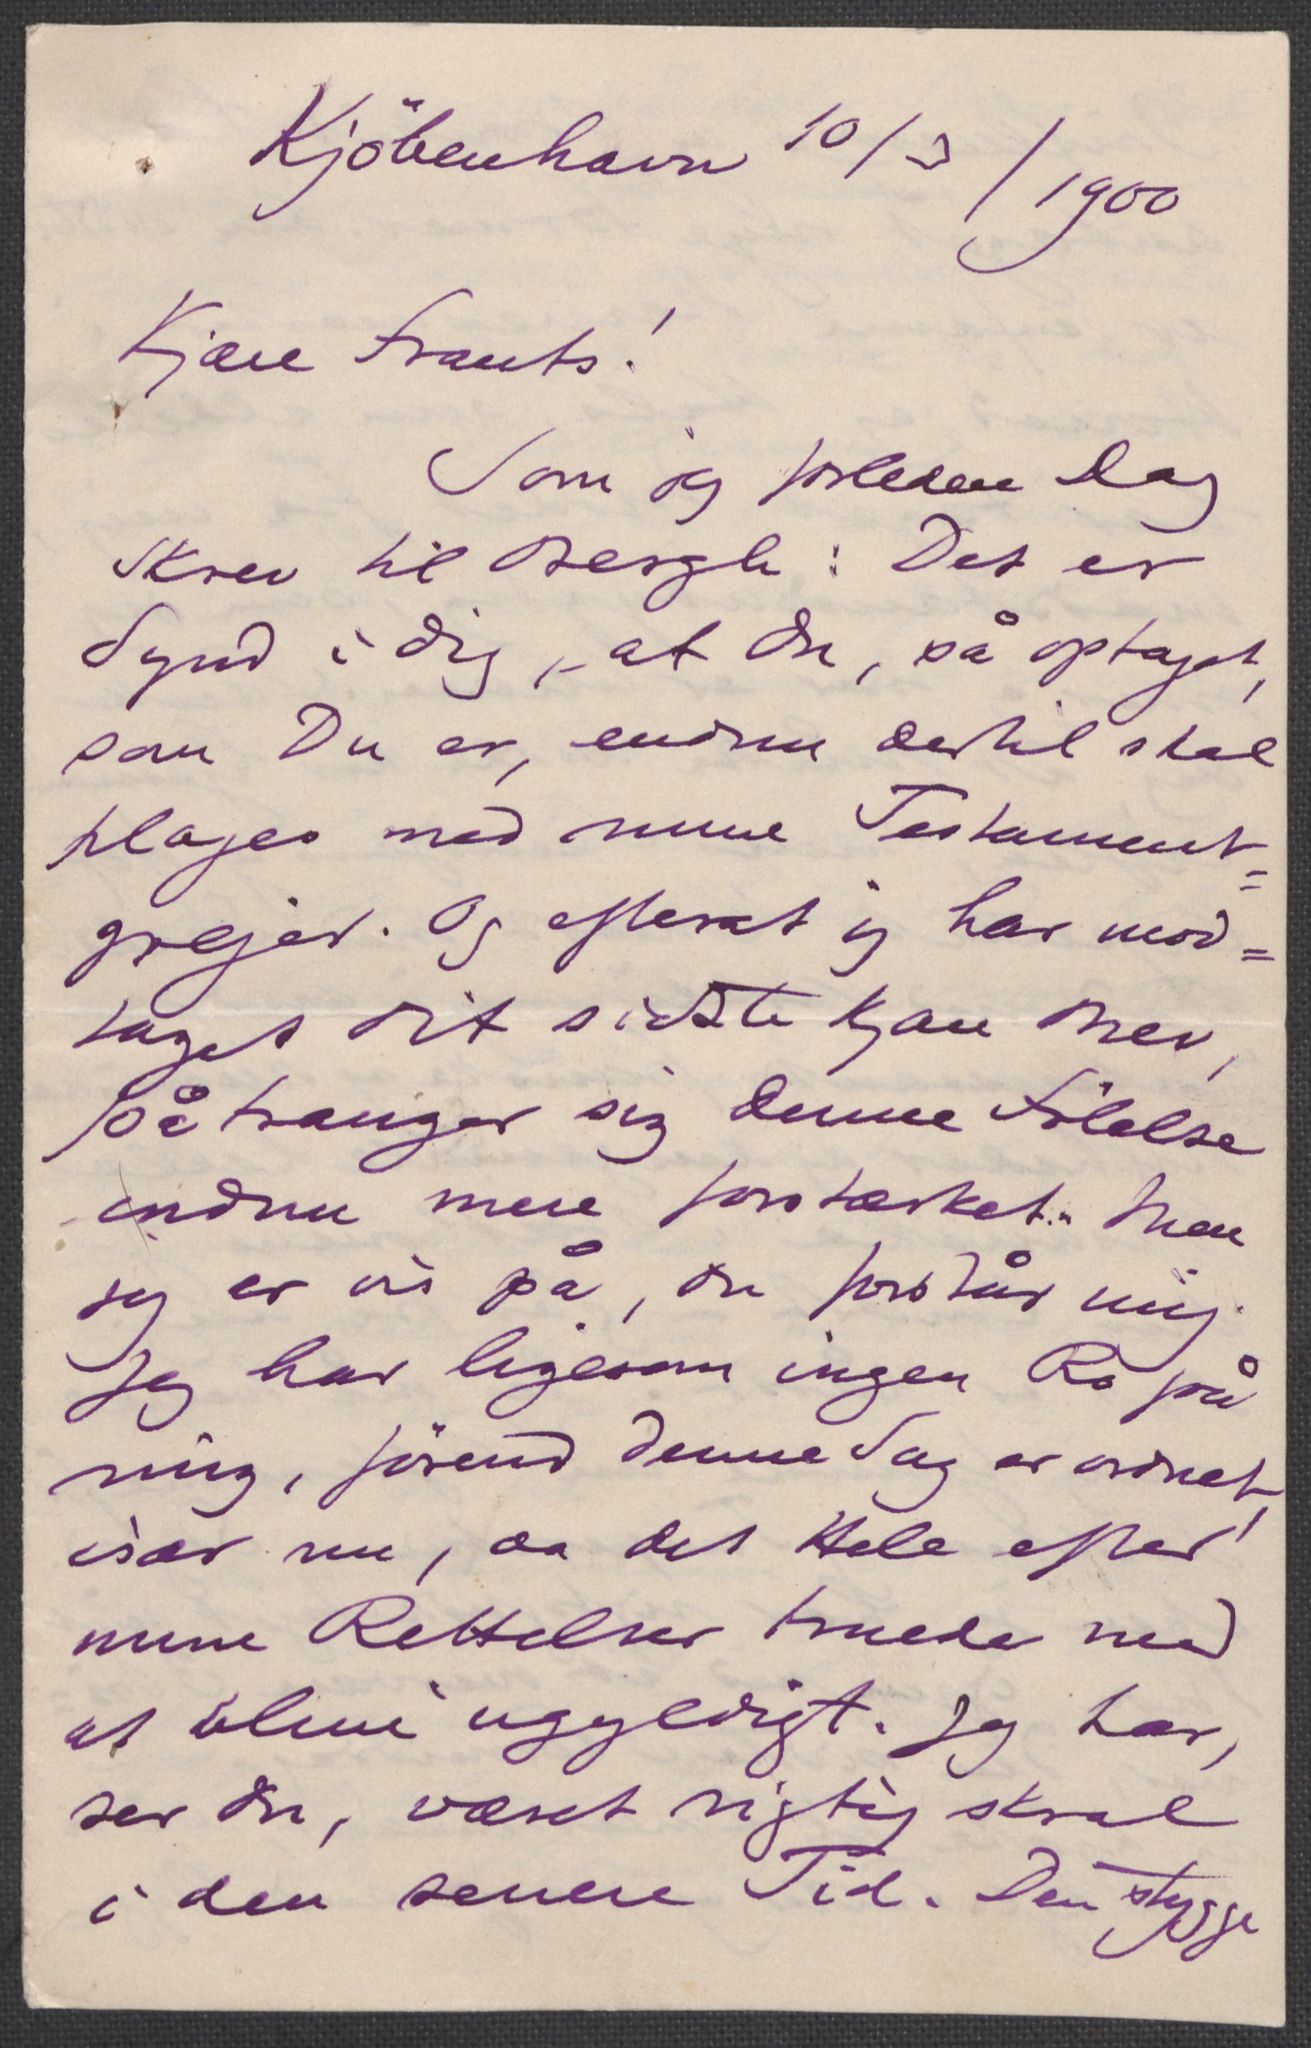 Kjöbenhavn 10/3/1900
Kjære Frants!
Som jeg forleden Dag
skrev til Bergh: Det er
Synd i dig, at du, så optaget,
som Du er, endnu dertil skal
plages med mine Testament=
grejer. Og efterat jeg har mod=
taget dit sidste kjære Brev,
påtrænger sig denne Følelse
endnu mere forstærket. Men
jeg er vis på, du forstår mig.
Jeg har ligesom ingen Ro på
mig, förend denne Sag er ordnet,
især nu, da det Hele efter
mine Rettelser truede med
at blive ugyldigt. Jeg har,
ser du, været rigtig skral
i den senere Tid. Den stygge